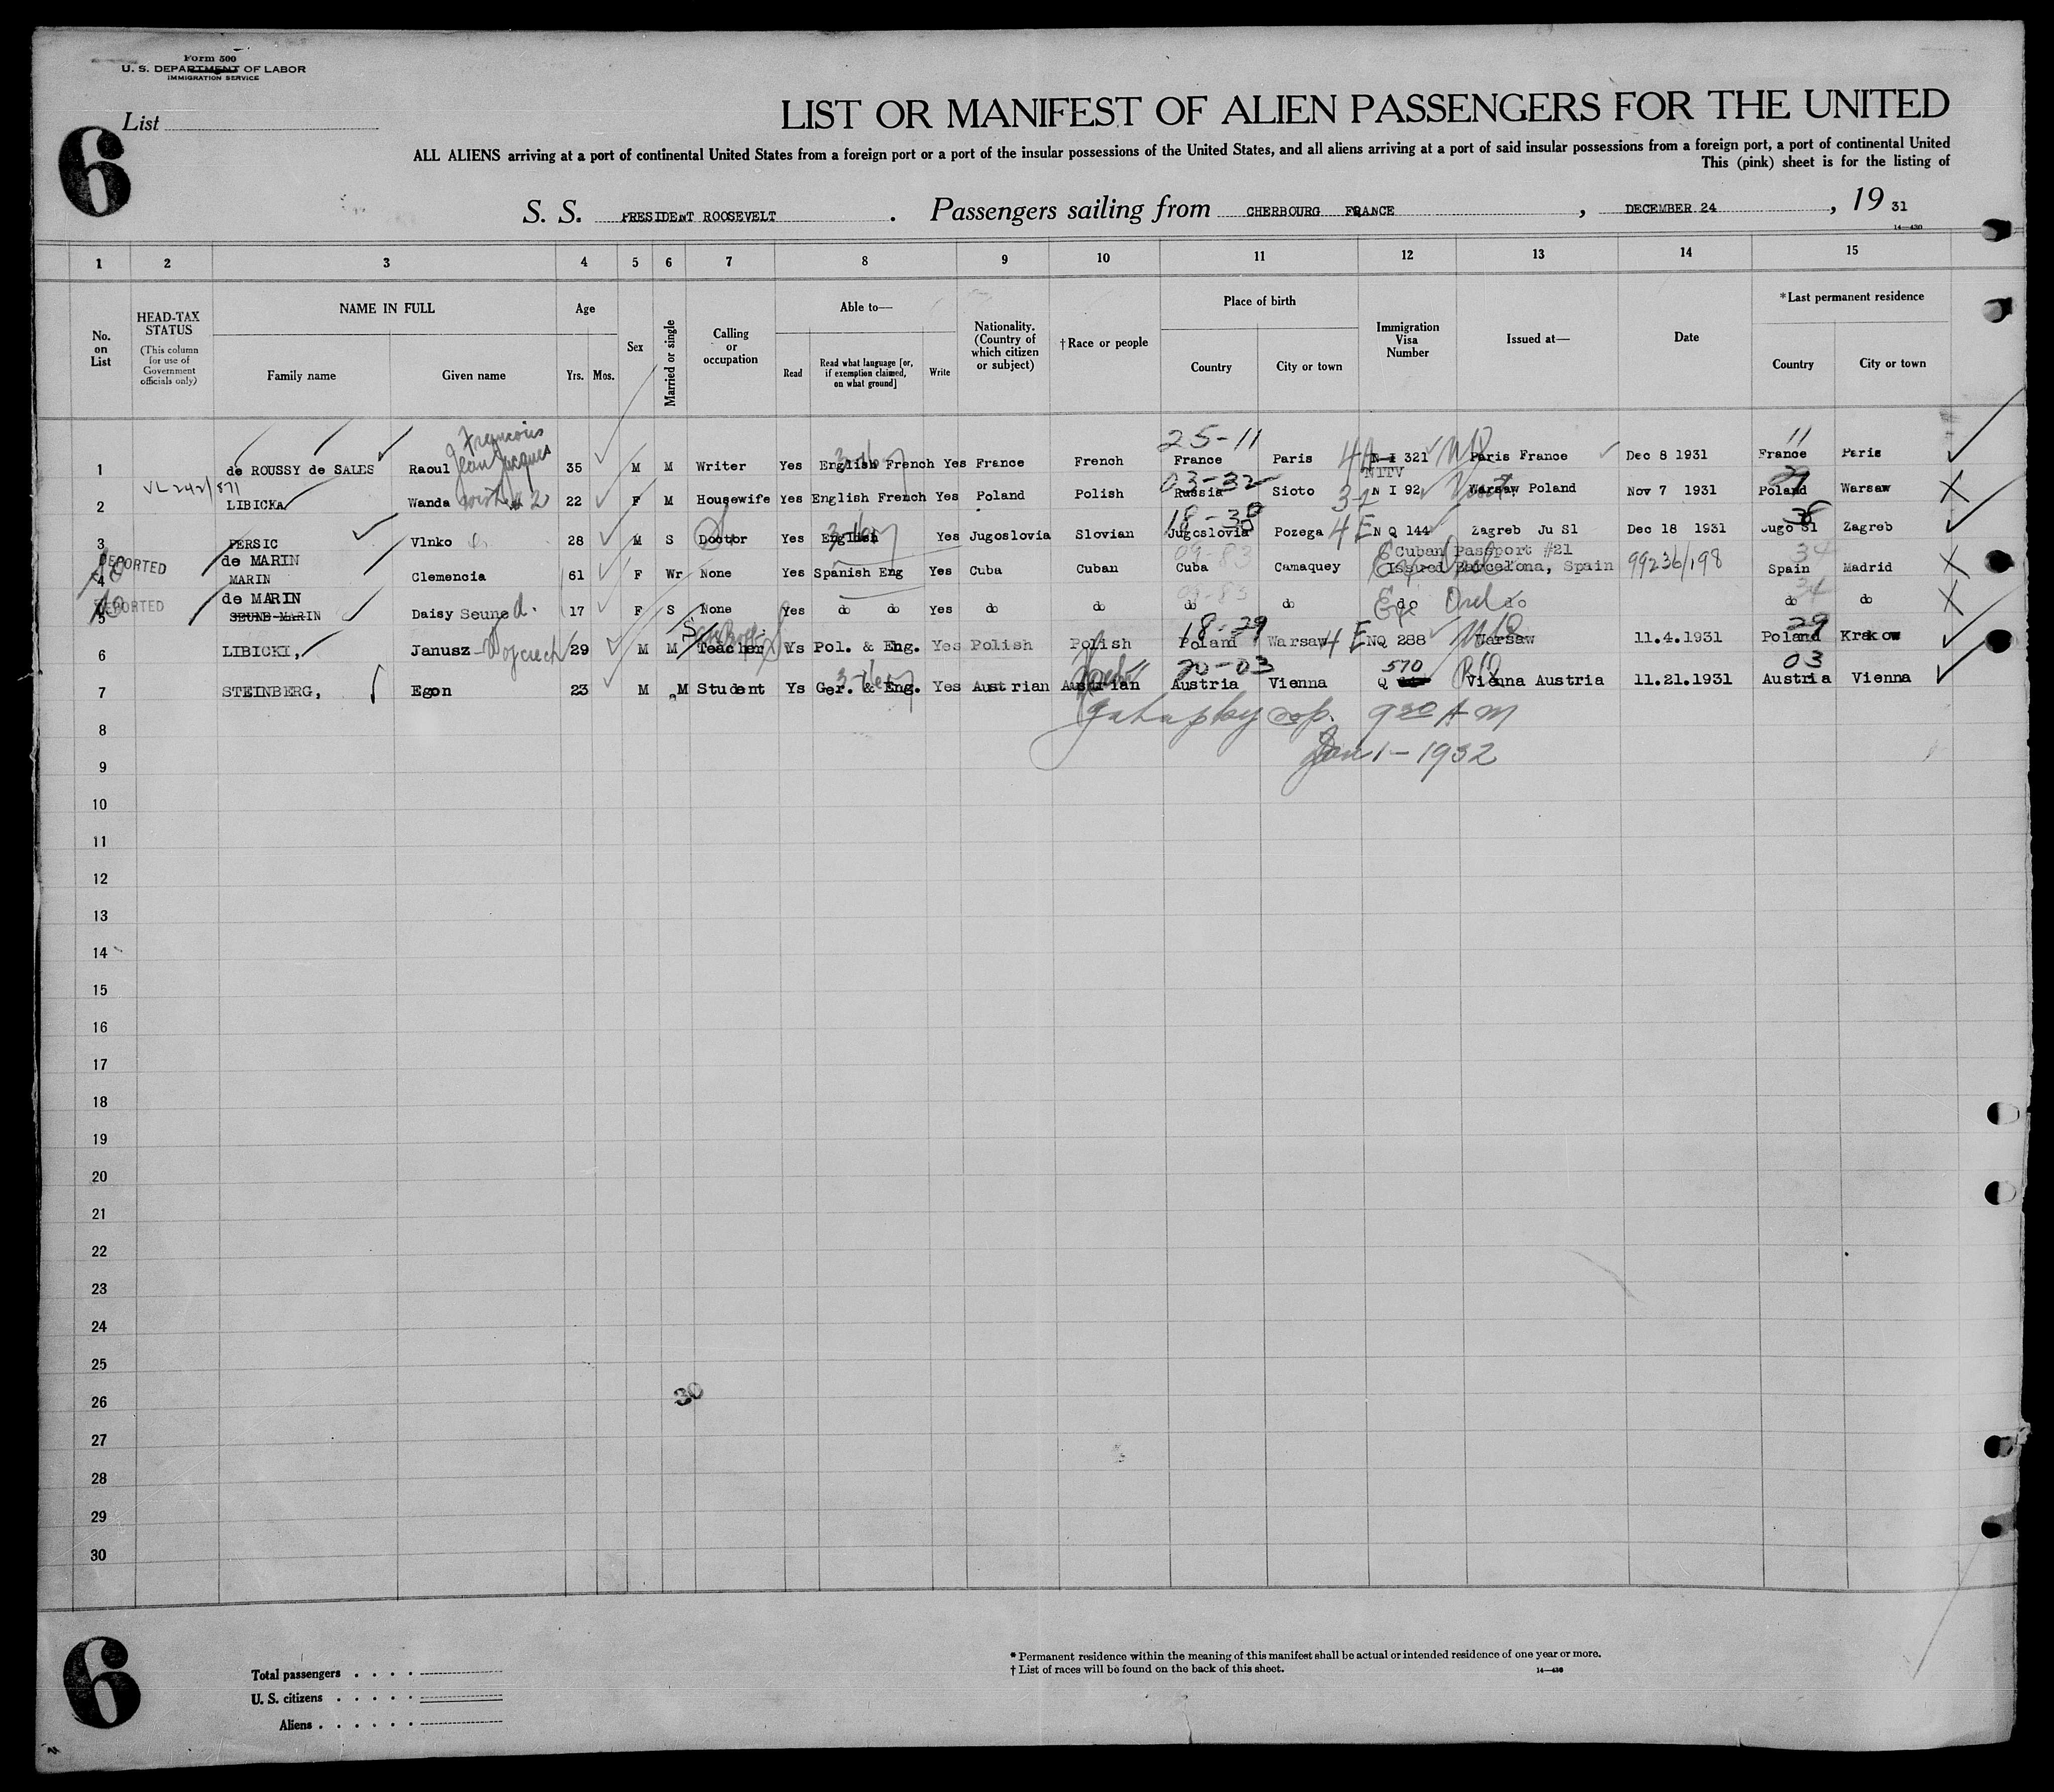 Form 500
U. S. DEPARTMENT OF LABOR
IMMIGRATION SERVICE
List
6
LIST OR MANIFEST OF ALIEN PASSENGERS FOR THE UNITED
ALL ALIENS arriving at a port of continental United States from a foreign port or a port of the insular possessions of the United States, and all aliens arriving at a port of said insular possessions from a foreign port, a port of continental United
This (pink) sheet is for the listing of
S. S. PRESIDENT ROOSEVELT . Passengers sailing from CHERBOURG FRANCE , DECEMBER 24 , 19 31
14—430
1 2 3 4 5 6 7 8 9 10 11 12 13 14 15
No. on List
HEAD-TAX STATUS
(This column for use of Government officials only)
NAME IN FULL
Family name Given name
Age
Yrs. Mos.
Sex
Married or single
Calling or occupation
Able to—
Read Read what language [or, if exemption claimed, on what ground] Write
Nationality. (Country of which citizen or subject)
†Race or people
Place of birth
Country City or town
Immigration Visa Number
Issued at—
Date
*Last permanent residence
Country City or town
Francois
Jean Jacques
25-11 11
1 de ROUSSY de SALES Raoul 35 M M Writer Yes English French Yes France French France Paris N I 321 Paris France Dec 8 1931 France Paris
VL 242/871
NITV
03-32
2 LIBICKA Wanda 22 F M Housewife Yes English French Yes Poland Polish Russia Sioto N I 92 Warsaw Poland Nov 7 1931 Poland Warsaw
18-38
3 PERSIC Vlnko 28 M S Doctor Yes English Yes Jugoslovia Slovian Jugoslovia Pozega 4 E N Q 144 Zagreb Ju Sl Dec 18 1931 Jugo Sl Zagreb
DEPORTED
de MARIN
09-83
Cuban Passport #21
34
4 MARIN Clemencia 61 F Wr None Yes Spanish Eng Yes Cuba Cuban Cuba Camaquey Issued Barcelona, Spain 99236/198 Spain Madrid
DEPORTED
de MARIN
09-83
34
5 SEUNB-MARIN Daisy Seune d. 17 F S None Yes do do Yes do do do do do do do do
S
18-29 29
6 LIBICKI, Janusz-Wojciech 29 M M Teacher Ys Pol. & Eng. Yes Polish Polish Poland Warsaw 4 E NQ 288 Warsaw 11.4.1931 Poland Krakow
20-03 570 03
7 STEINBERG, Egon 23 M M Student Ys Ger. & Eng. Yes Austrian Austrian Austria Vienna Q Vienna Austria 11.21.1931 Austria Vienna
8 9 30 A M
9 Jan 1-1932
10
11
12
13
14
15
16
17
18
19
20
21
22
23
24
25
26 30
27
28
29
30
6
Total passengers
U. S. citizens
Aliens
* Permanent residence within the meaning of this manifest shall be actual or intended residence of one year or more.
† List of races will be found on the back of this sheet.
14—430